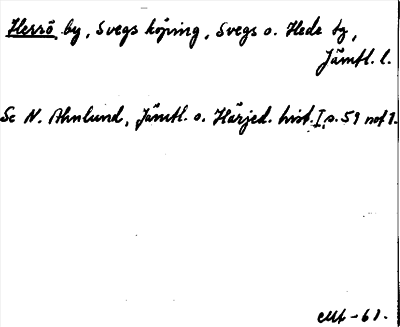 Herrö by, Svegs köping, Svegs o. Hede tg,
Jämtl. l.
Se N. Ahnlund, Jämtl. o. Härjed. hist. I, s. 59 not 1.